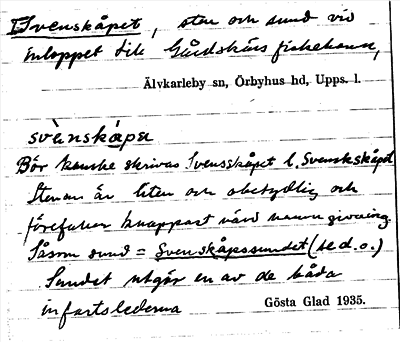 Svenskåpet, sten och sund vid
inloppet till Gårdskärs fiskehamn,
Älvkarleby sn, Örbyhus hd, Upps. l.
svènskǻpə
Bör kanske skrivas Svensskåpet l. Svenskskåpet
Stenen är liten och obetydlig och
förefaller knappast värd namngivning.
Såsom sund = Svenskåpssundet (se d. o.)
Sundet utgör en av de båda
infartslederna
Gösta Glad 1935.